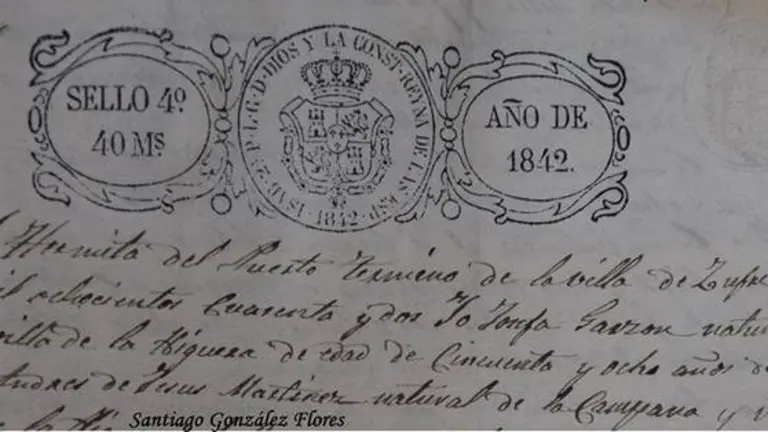 SELLO 4º
40 Ms.
ISAB. 2ª P. L. G. D. DIOS Y LA CONST. REYNA DE LAS ESP.
1842
AÑO DE
1842.
Hermita del Puerto termino de la villa de Zufre
mil ochocientos Cuarenta y dos Yo Josefa Garzon natu
villa de la Higuera de edad de Cincuenta y ocho años de
Andres de Jesus Martinez natural de la Campana y
Santiago González Flores